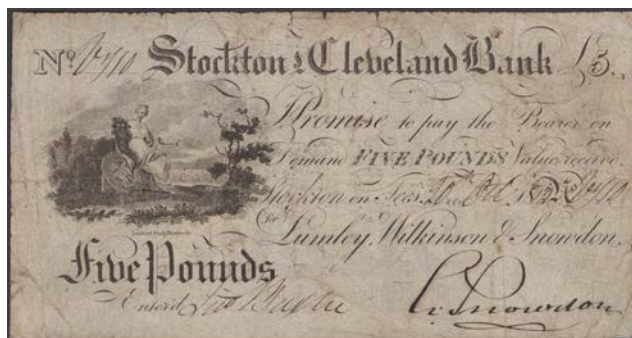 No. Stockton & Cleveland Bank £5
I Promise to pay the Bearer on
Demand FIVE POUNDS Value receiv'd
Stockton on Tees
for Lumley, Wilkinson & Snowdon
Five Pounds
Enterd G. Snowdon